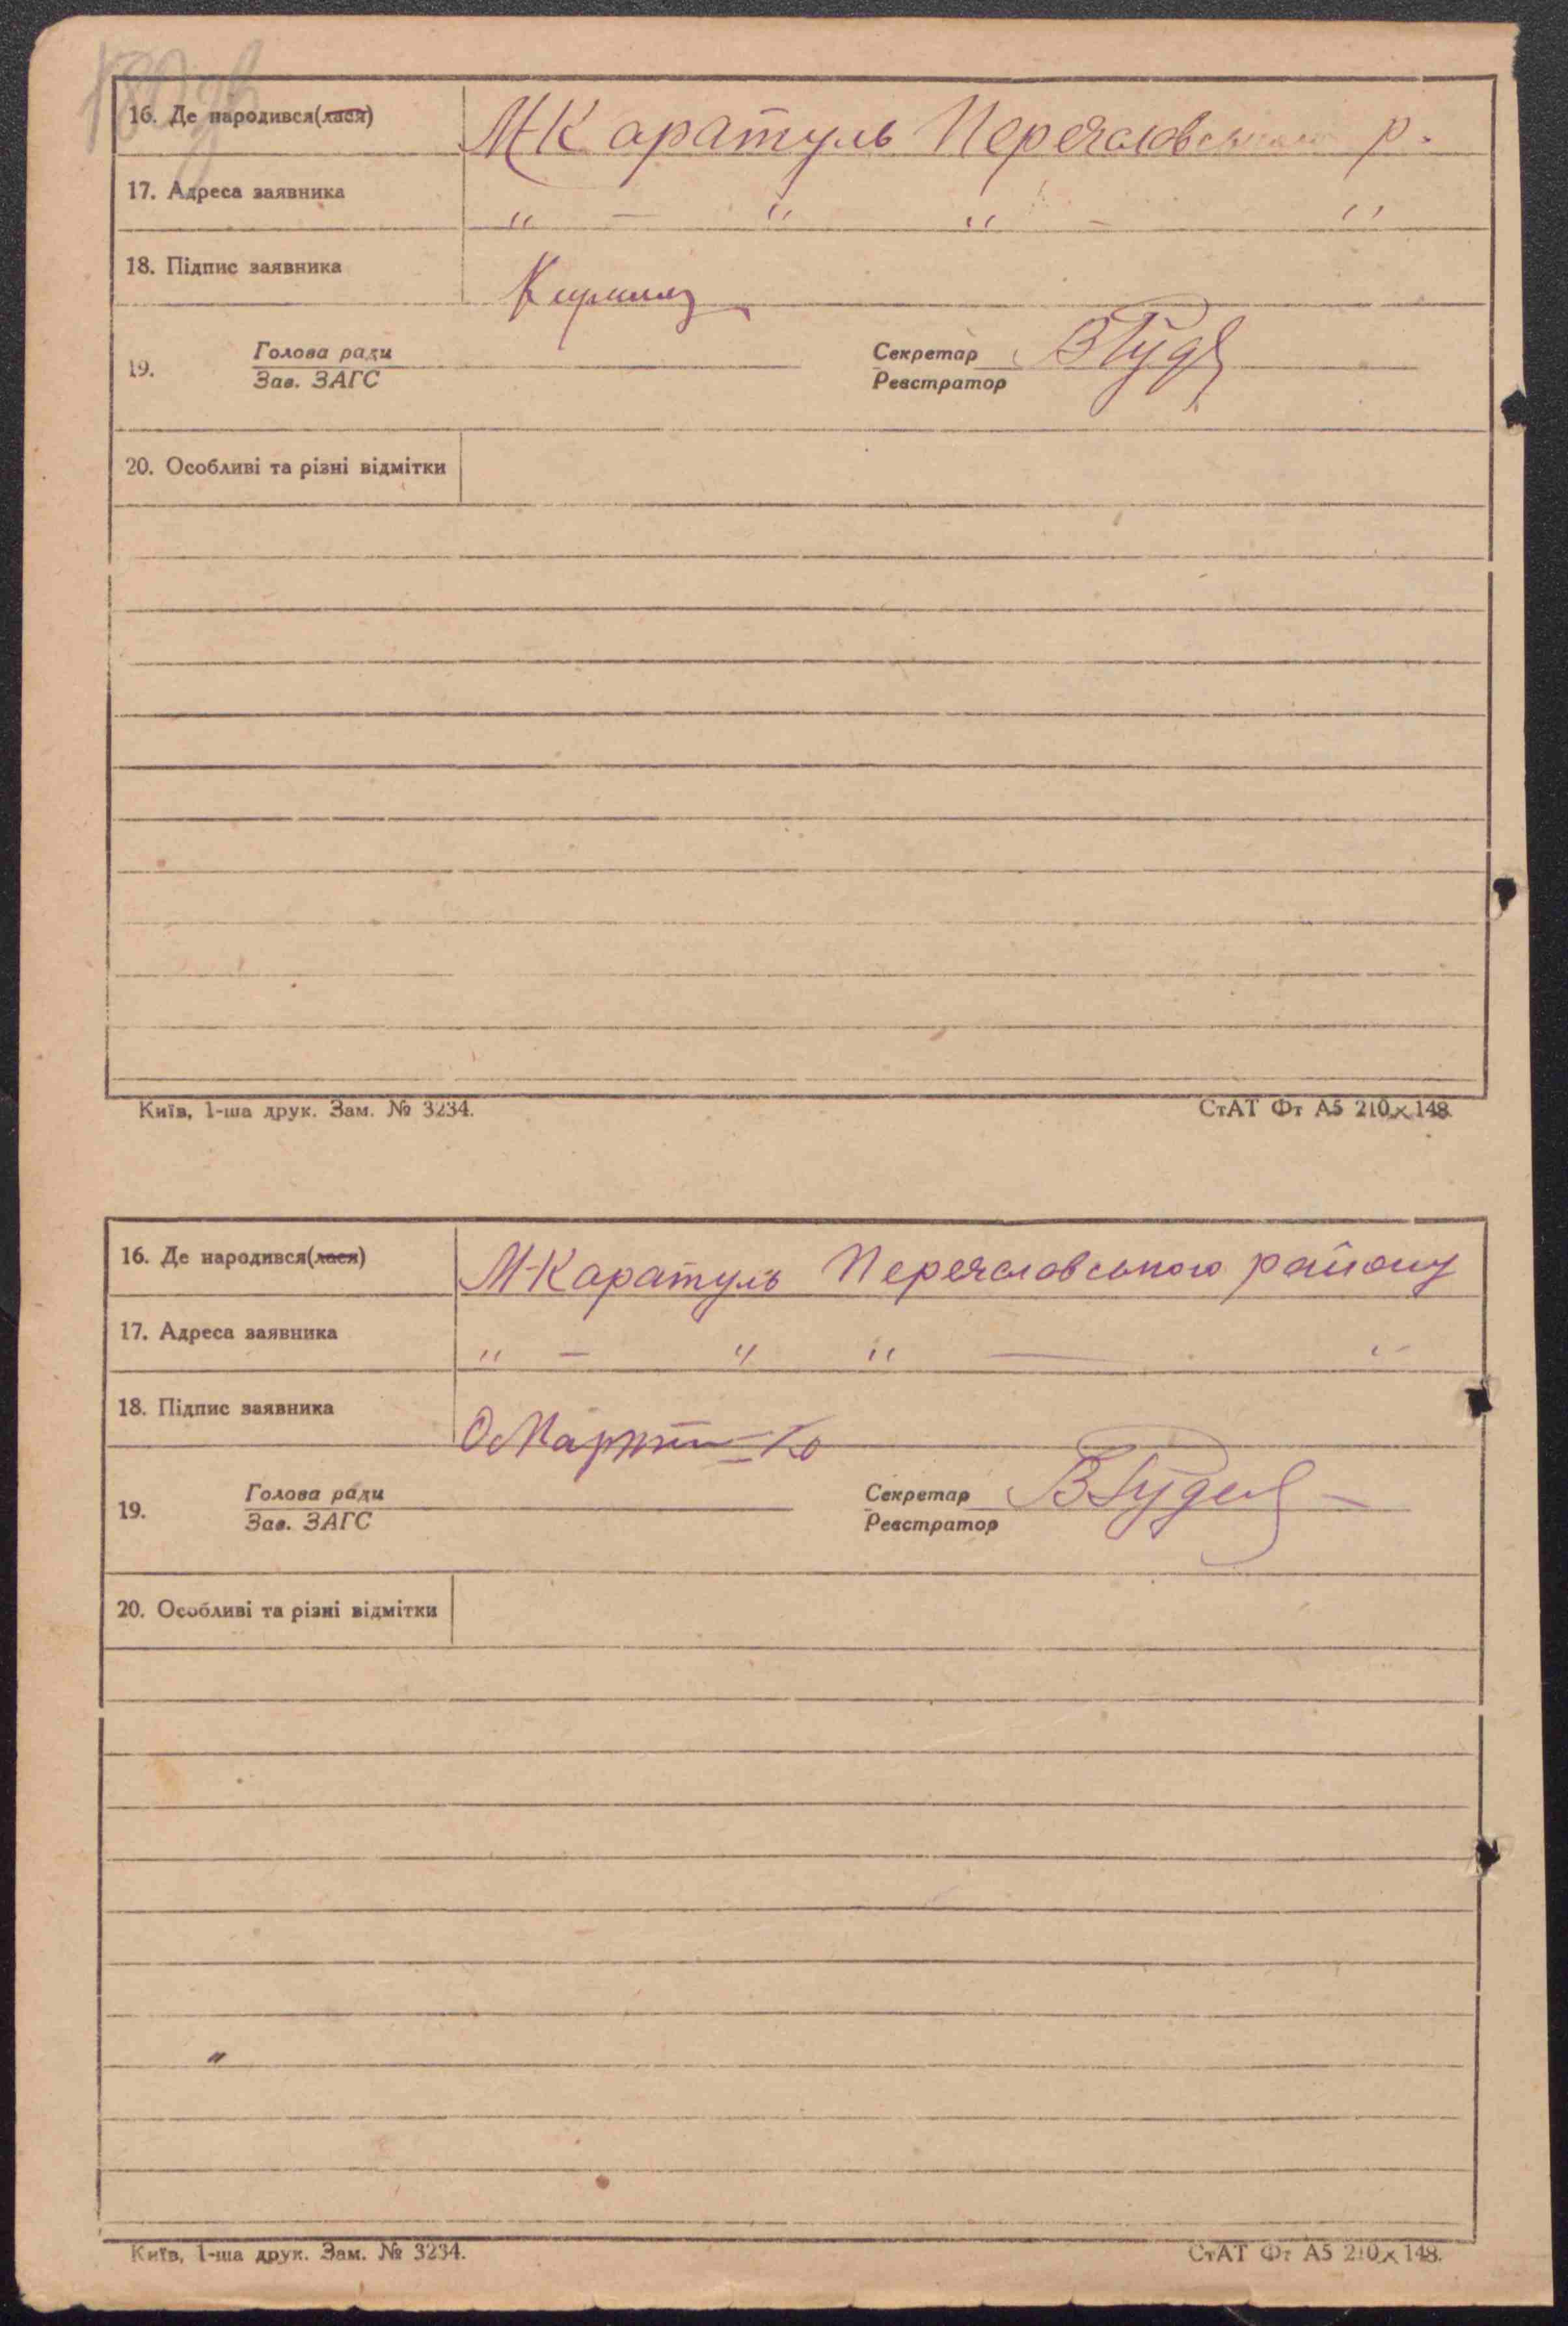 16. Де народився(лася) М-Каратуль Переяславського р.
17. Адреса заявника " — " " — "
18. Підпис заявника
19. Голова ради Секретар
Зав. ЗАГС Реєстратор
20. Особливі та різні відмітки
Київ, 1-ша друк. Зам. № 3234. СтАТ Фт А5 210×148.
16. Де народився(лася) М-Каратуль Переяславського району
17. Адреса заявника " — " " — "
18. Підпис заявника
19. Голова ради Секретар
Зав. ЗАГС Реєстратор
20. Особливі та різні відмітки
"
Київ, 1-ша друк. Зам. № 3234. СтАТ Фт А5 210×148.